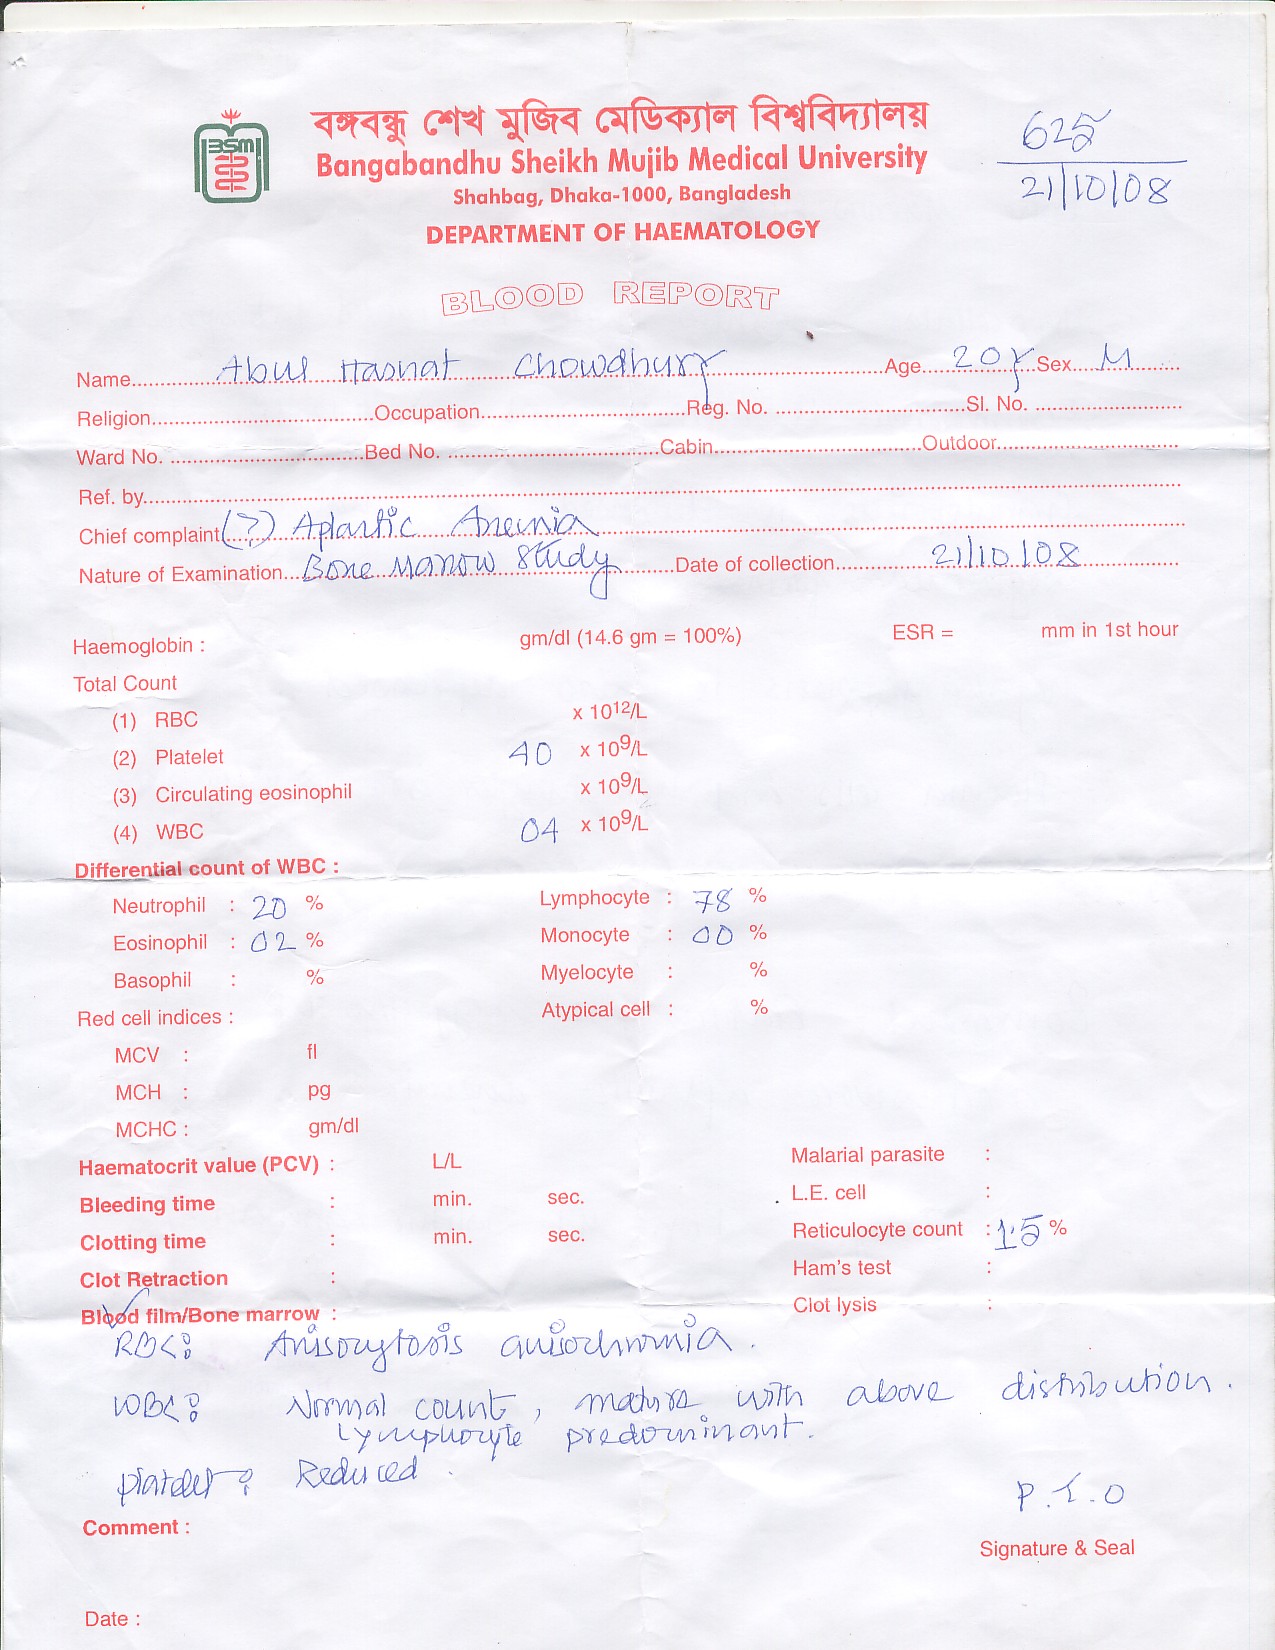 বঙ্গবন্ধু শেখ মুজিব মেডিক্যাল বিশ্ববিদ্যালয়
BSM
Bangabandhu Sheikh Mujib Medical University
Shahbag, Dhaka-1000, Bangladesh
DEPARTMENT OF HAEMATOLOGY
625
21/10/08
BLOOD REPORT
Name Abul Hasnat Chowdhury Age 20y Sex M
Religion Occupation Reg. No. Sl. No.
Ward No. Bed No. Cabin Outdoor
Ref. by
Chief complaint (?) Aplastic Anemia
Nature of Examination Bone Marrow Study Date of collection 21/10/08
Haemoglobin : gm/dl (14.6 gm = 100%) ESR = mm in 1st hour
Total Count
(1) RBC x 10¹²/L
(2) Platelet 40 x 10⁹/L
(3) Circulating eosinophil x 10⁹/L
(4) WBC 04 x 10⁹/L
Differential count of WBC :
Neutrophil : 20 % Lymphocyte : 78 %
Eosinophil : 02 % Monocyte : 00 %
Basophil : % Myelocyte : %
Red cell indices : Atypical cell : %
MCV : fl
MCH : pg
MCHC : gm/dl
Haematocrit value (PCV) : L/L Malarial parasite :
Bleeding time : min. sec. L.E. cell :
Clotting time : min. sec. Reticulocyte count : 1.5 %
Clot Retraction : Ham's test :
Blood film/Bone marrow : Clot lysis :
RBC: Anisocytosis anisochromia.
WBC: Normal count, mature with above distribution.
Lymphocyte predominant.
Platelet: Reduced.
P.T.O
Comment :
Signature & Seal
Date :